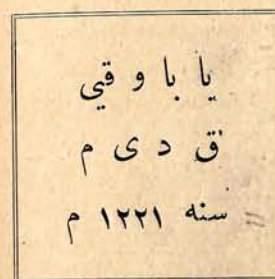 يا با و قيي
ق د ى م
سنه ١٢٢١ م